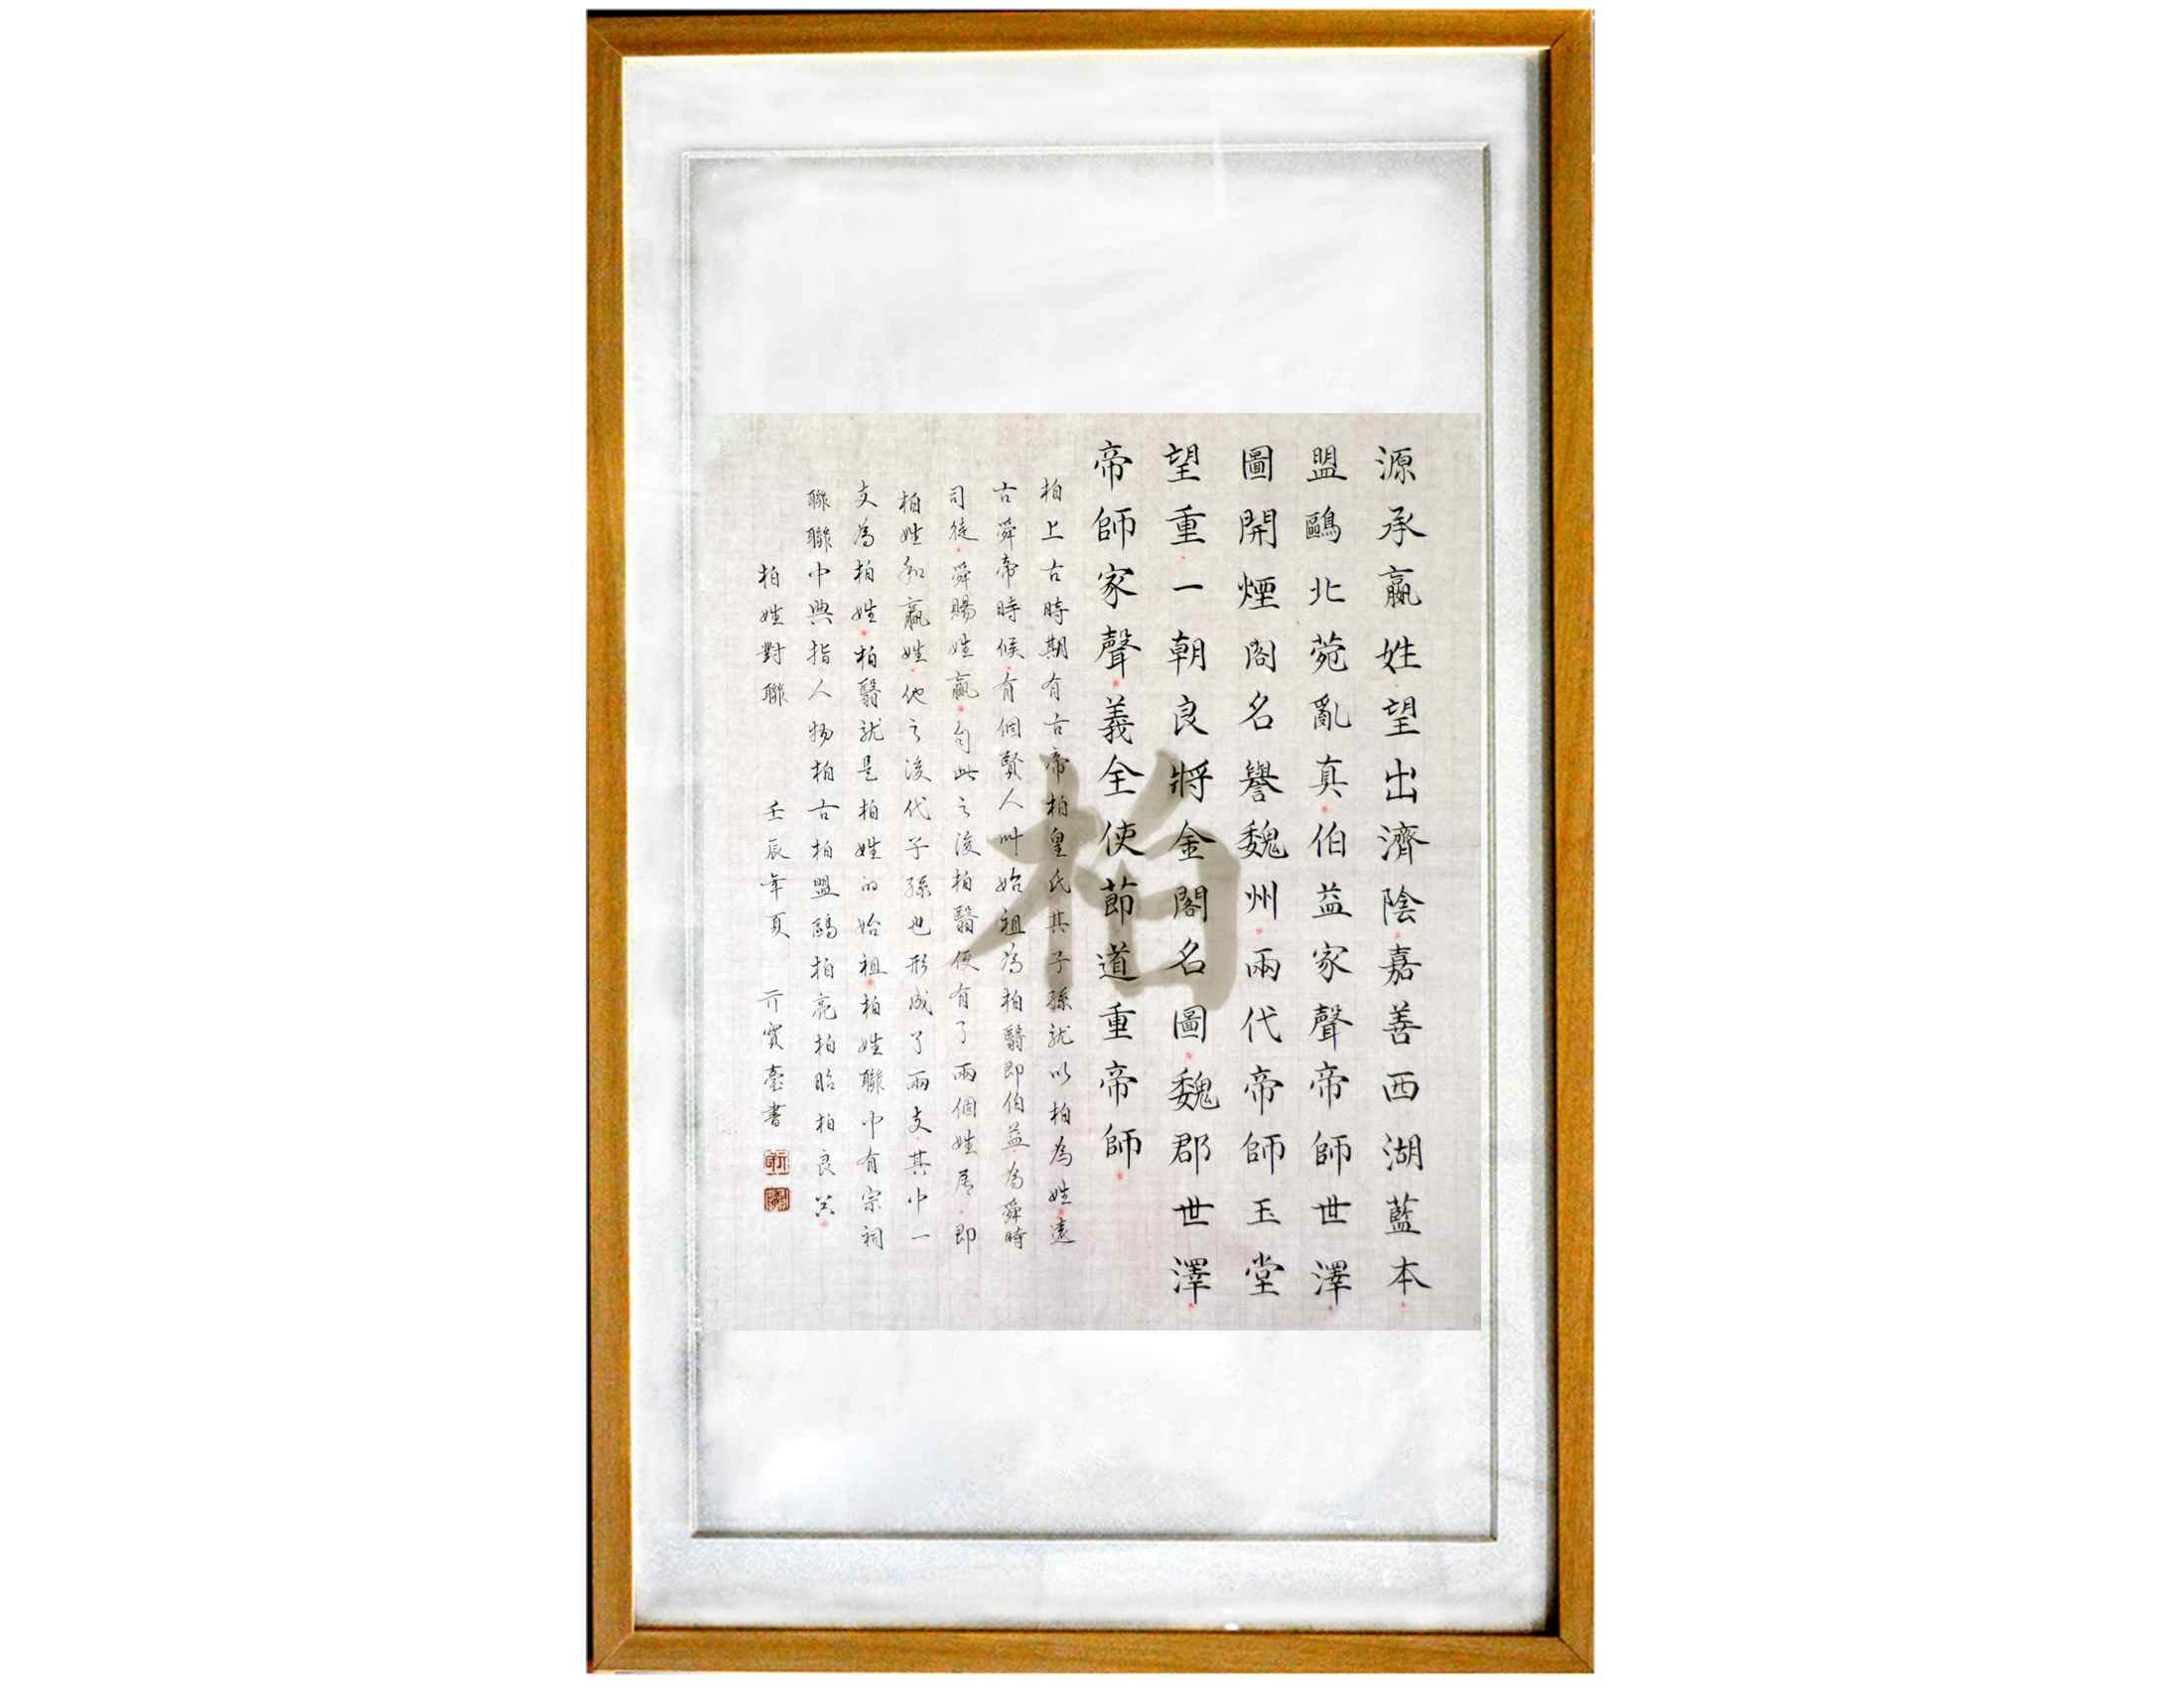 源承嬴姓望出濟陰嘉善西湖藍本
盟鷗北菀亂真伯益家聲帝師世澤
圖開煙閣名譽魏州兩代帝師玉堂
望重一朝良將金閣名圖魏郡世澤
帝師家聲義全使節道重帝師
柏上古時期有古帝柏皇氏其子孫就以柏為姓遠
古舜帝時候有個賢人叫始祖為柏翳即伯益為舜時
司徒舜賜姓嬴句此之後柏翳便有了兩個姓居即
柏姓和嬴姓他之後代子孫也形成了兩支其中一
支為柏姓柏翳就是柏姓的始祖柏姓聯中有宗祠
聯聯中典指人物柏古柏盟鷗柏亮柏昭柏良等
柏姓對聯 壬辰年夏 亓寶臺書
柏